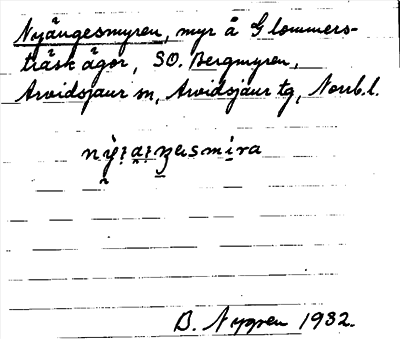 Nyängesmyren, myr å Glommers-
träsk ägor, SO. Bergmyren,
Arvidsjaur sn, Arvidsjaur tg, Norrb. l.
B. Nygren 1932.